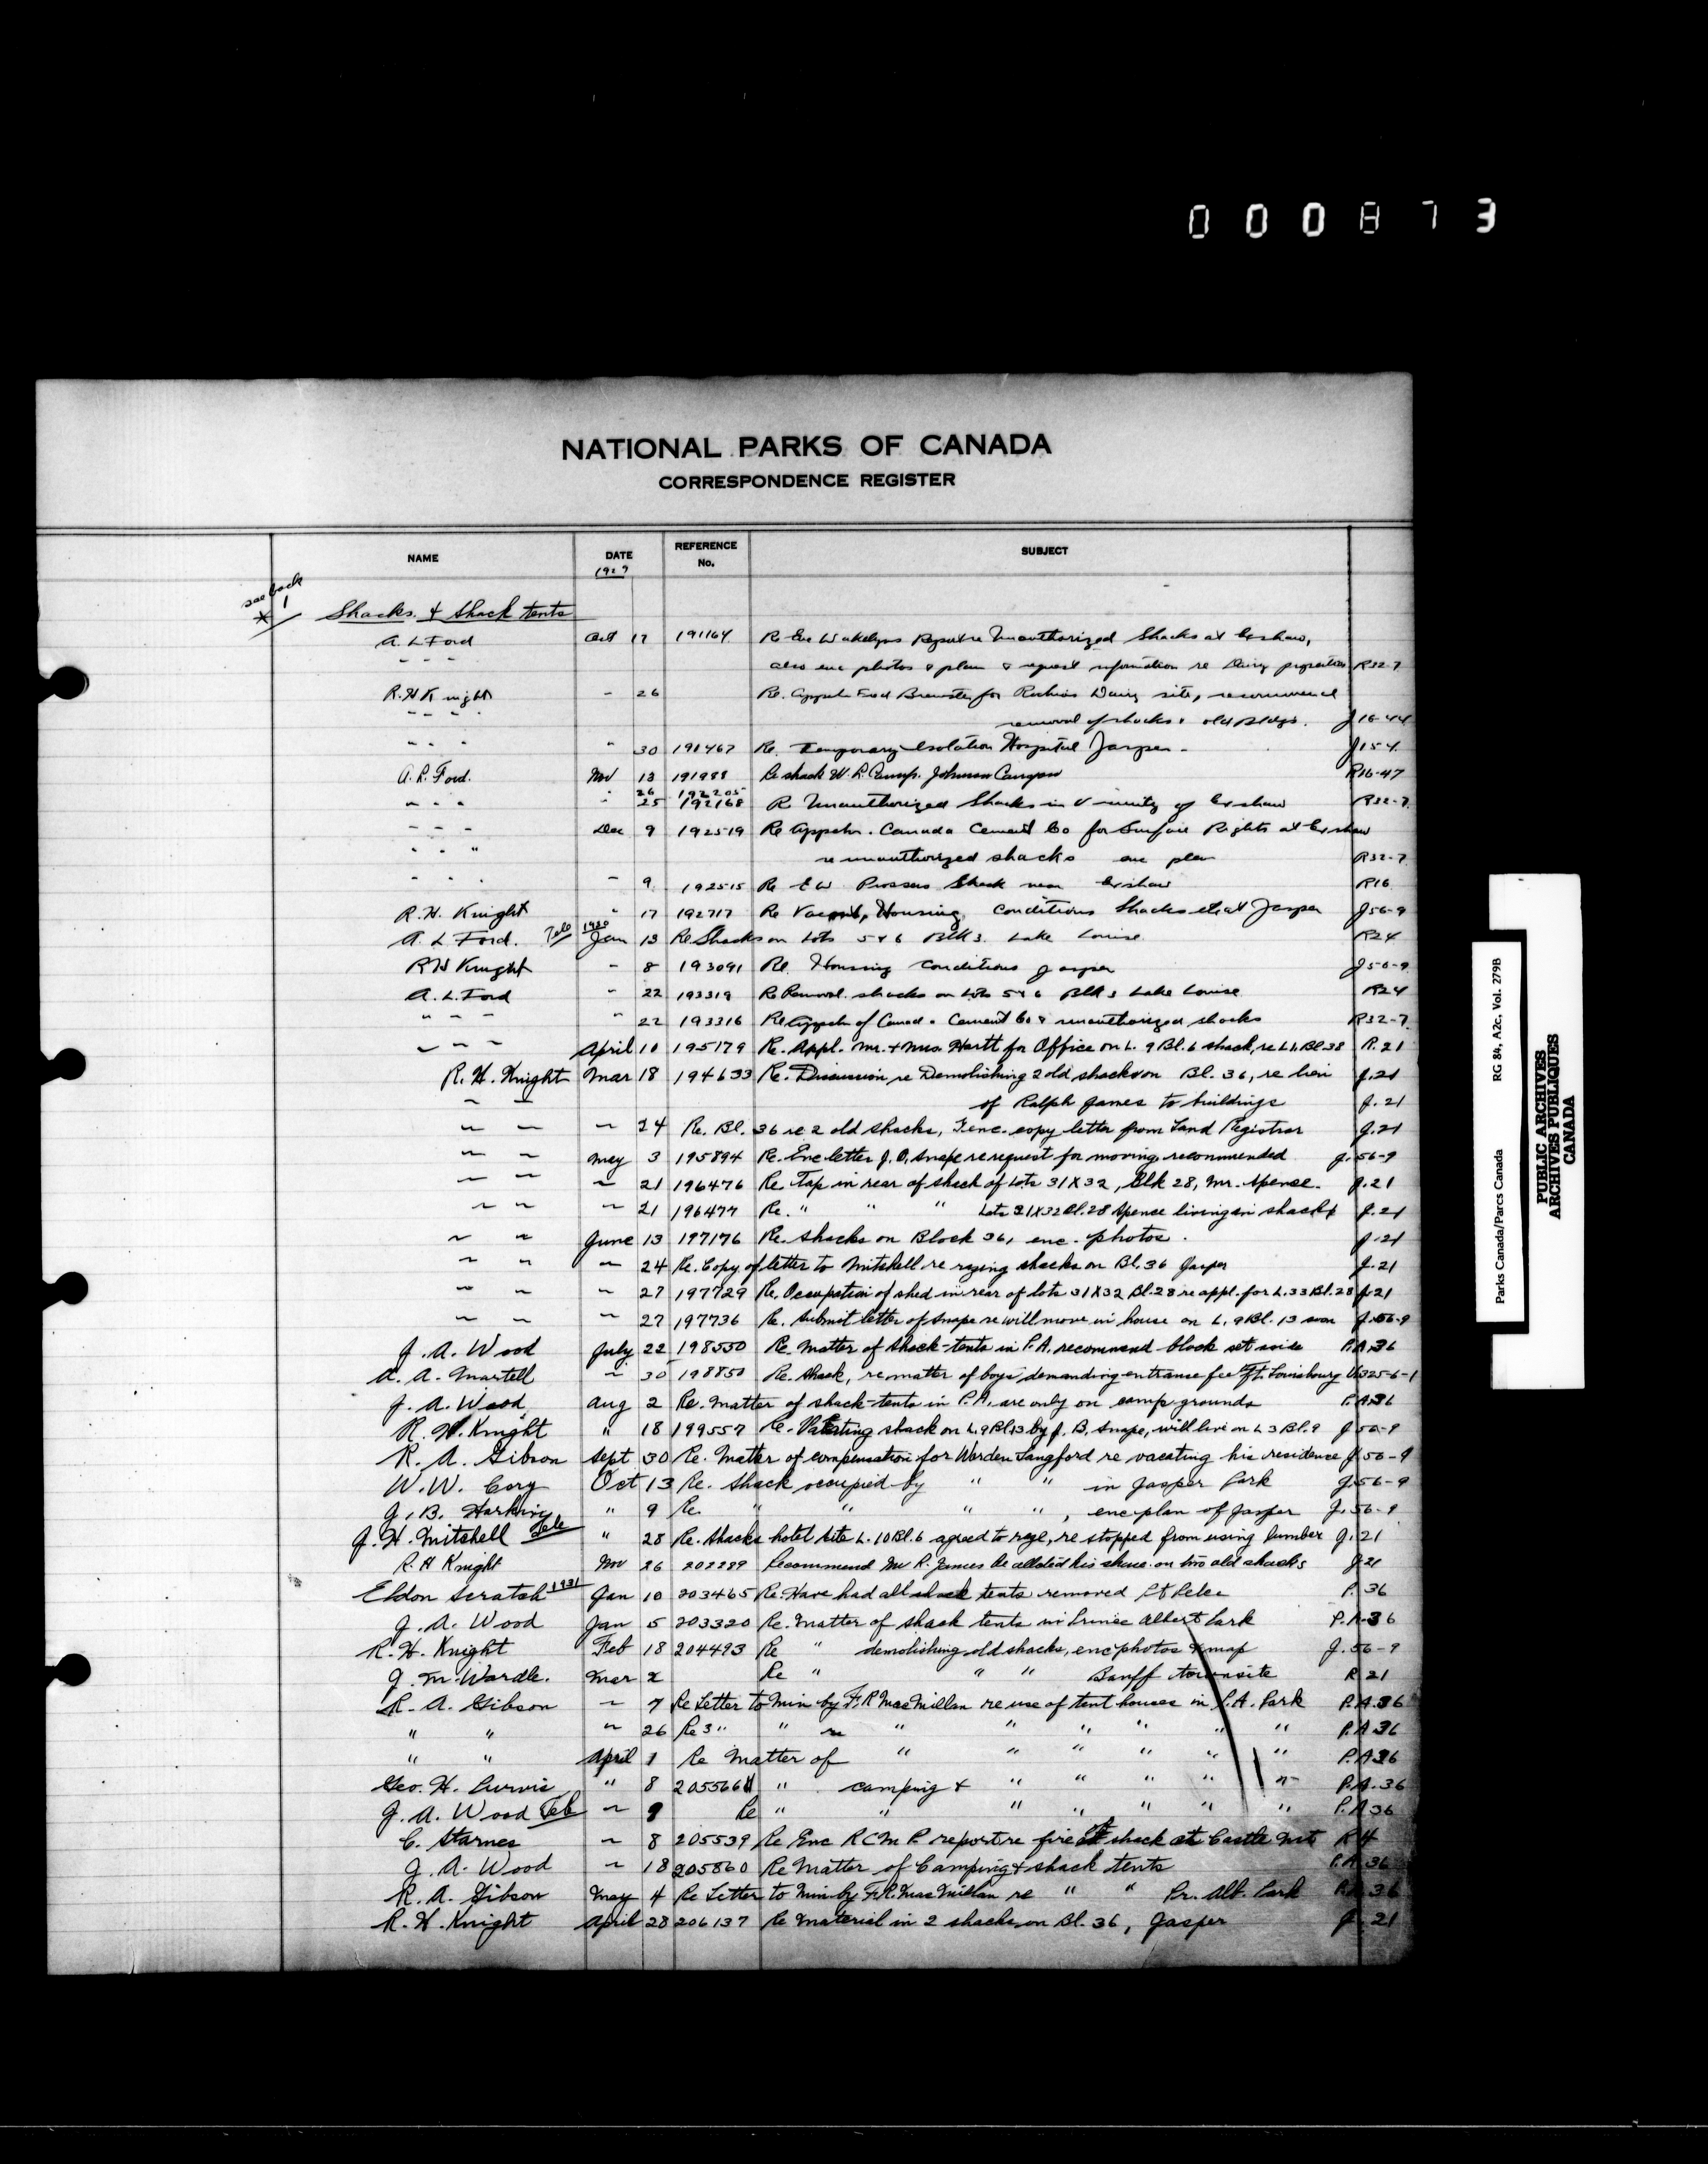 000873
NATIONAL PARKS OF CANADA
CORRESPONDENCE REGISTER
NAME DATE REFERENCE No. SUBJECT
1929
see back
* 1 Shacks & Shack tents
A. L. Ford Oct 17 191164 Re Unauthorized Shacks at Exshaw,
" " " also enc photos & plan & request information re Dairy R32-7
R. H. Knight " 26 Re. Fred Brewster for Dairy site, recommend
" " " removal of shacks & old Bldgs. J16-44
" " " " 30 191467 Re. Temporary Isolation Hospital Jasper - J154
A. L. Ford. Nov 13 191988 Re shack W. R. Camp. Johnson Canyon R16-47
" 26 192205
" " " " 25 192168 Re Unauthorized Shacks in Vicinity of Exshaw R32-7
" " " Dec 9 192519 Re Canada Cement Co for Surface Rights at Exshaw
" " " re unauthorized shacks enc plan R32-7
" " " " 9 192515 Re E W Prossers Shack near Exshaw R16
R. H. Knight " 17 192717 Re Housing Conditions Shacks at Jasper J56-9
A. L. Ford. Tele 1930 Jan 13 Re Shacks on Lots 5 & 6 Blk 3. Lake Louise R24
R H Knight " 8 193091 Re. Housing Conditions Jasper J56-9
A. L. Ford " 22 193319 Re Removal shacks on Lots 5 & 6 Blk 3 Lake Louise R24
" " " " 22 193316 Re of Canada Cement Co & unauthorized shacks R32-7
" " " April 10 195179 Re. Appl. Mr. & Mrs. Hartt for Office on L. 9 Bl. 6 shack, re Bl. 38 R. 21
R. H. Knight Mar 18 194633 Re. Discussion re Demolishing 2 old shacks on Bl. 36, re lien
" " of Ralph James to buildings J. 21
" " " 24 Re. Bl. 36 re 2 old shacks, enc. copy letter from Land Registrar J. 21
" " May 3 195894 Re. Enc letter Snape re request for moving, recommended J. 56-9
" " " 21 196476 Re. Tap in rear of shack of Lots 31 X 32, Blk 28, Mr. Spence. J. 21
" " " 21 196477 Re. " " " Lots 31 X 32 Bl. 28 Spence living in shack J. 21
" " June 13 197176 Re. Shacks on Block 36, enc. photos. J. 21
" " " 24 Re. Copy of letter to Mitchell re razing shacks on Bl. 36 Jasper J. 21
" " " 27 197729 Re. Occupation of shed in rear of lots 31 X 32 Bl. 28 re appl. for L. 33 Bl. 28 J. 21
" " " 27 197736 Re. Submit letter of Snape re will move in house on L. 9 Bl. 13 soon J. 56-9
J. A. Wood July 22 198550 Re. Matter of shack-tents in P.A. recommend block set aside P.A. 36
A. A. Martell " 30 198850 Re. Shack, re matter of boys demanding entrance fee Ft. Louisbourg
J. A. Wood Aug 2 Re. Matter of shack-tents in P.A. are only on camp grounds P.A. 36
R. H. Knight " 18 199557 Re. Vacating shack on L. 9 Bl. 13 by J. B. Snape, will live on L 3 Bl. 9 J 56-9
R. A. Gibson Sept 30 Re. Matter of compensation for Warden Langford re vacating his residence J. 56-9
W. W. Cory Oct 13 Re. Shack occupied by " " in Jasper Park J. 56-9
J. B. Harkin " 9 Re. " " " " , enc plan of Jasper J. 56-9
J. H. Mitchell Tele " 28 Re. Shacks hotel site L. 10 Bl. 6 agreed to raze, re stopped from using lumber J. 21
R. H Knight Nov 26 202289 Recommend Mr R. James be his share on two old shacks J 21
Eldon Scratch 1931 Jan 10 203465 Re. Have had all shack tents removed Pt Pelee P. 36
J. A. Wood Jan 5 203320 Re. Matter of shack tents in Prince Albert Park P.A. 36
R. H. Knight Feb 18 204493 Re " demolishing old shacks, enc photos & map J. 56-9
J. M. Wardle. Mar 2 Re " " " Banff townsite R 21
R. A. Gibson " 7 Re Letter to Min by F. R MacMillan re use of tent houses in P.A. Park P.A. 36
" " " 26 Re 3 " " re " " " " " " P.A 36
" " April 1 Re Matter of " " " " " " P.A 36
Geo. H. Purvis " 8 205566 " camping & " " " " " P.A. 36
J. A. Wood Tele " 9 Re " " " " " " " P.A 36
C. Starnes " 8 205539 Re Enc R C M P. report re fire at shack at Castle Mt R 4
J. A. Wood " 18 205860 Re Matter of Camping & shack tents P.A. 36
R. A. Gibson May 4 Re Letter to Min by F. R. MacMillan re " " Pr. Alb. Park P.A. 36
R. H. Knight April 28 206137 Re Material in 2 shacks on Bl. 36, Jasper J. 21
Parks Canada/Parcs Canada RG 84, A2c, Vol. 279B
PUBLIC ARCHIVES
ARCHIVES PUBLIQUES
CANADA